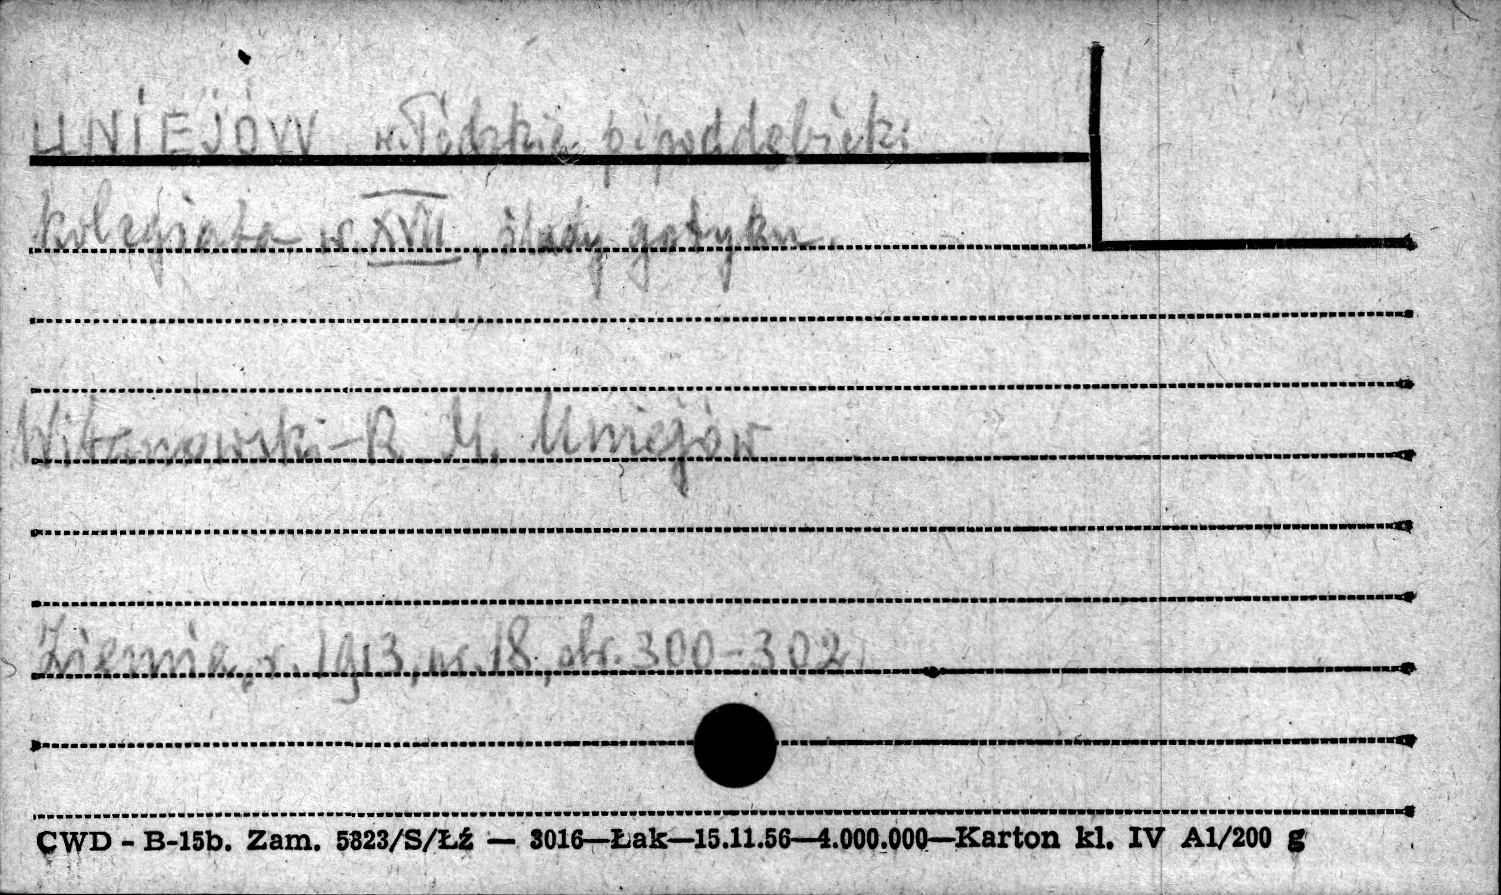 UNIEJÓW w. Łódzkie p. poddębicki
kolegiata w XVII, ślady gotyku.
Witanowski-R. M. Uniejów
Ziemia, r. 1913, nr. 18, str. 300-302.
CWD - B-15b. Zam. 5823/S/Łź — 3016—Łak—15.11.56—4.000.000—Karton kl. IV A1/200 g